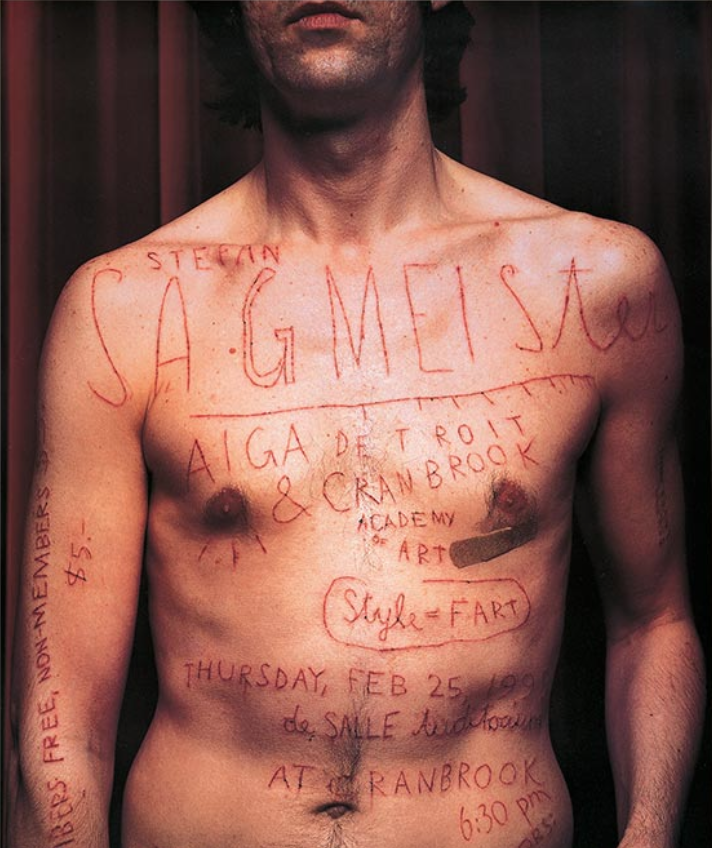 STEFAN
SAGMEISter
AIGA DETROIT
& CRANBROOK
ACADEMY
OF
ART
Style=FART
THURSDAY, FEB 25, 199
de SALLE Auditorium
AT CRANBROOK
6:30 pm
$5.-
BERS FREE, NON-MEMBERS